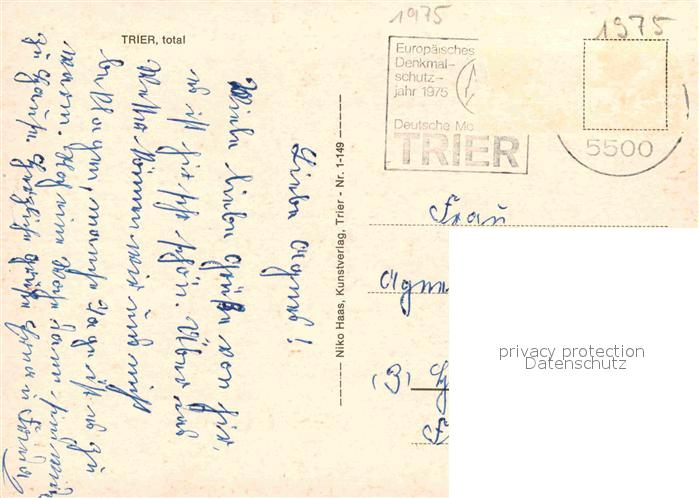 1975
1975
TRIER, total
Europäisches
Denkmal-
schutz-
jahr 1975
Deutsche Mo
TRIER
5500
Niko Haas, Kunstverlag, Trier - Nr. 1-149
Liebe Agnes!
Liebe Grüße von hier,
es ist hier sehr schön. Über das
Wetter können wir uns nicht
beklagen, manche Tage ist es zu
warm. Noch eine Woche dann sind wir
zu Hause. Herzliche Grüße
Frau
Agn
(3)
privacy protection
Datenschutz